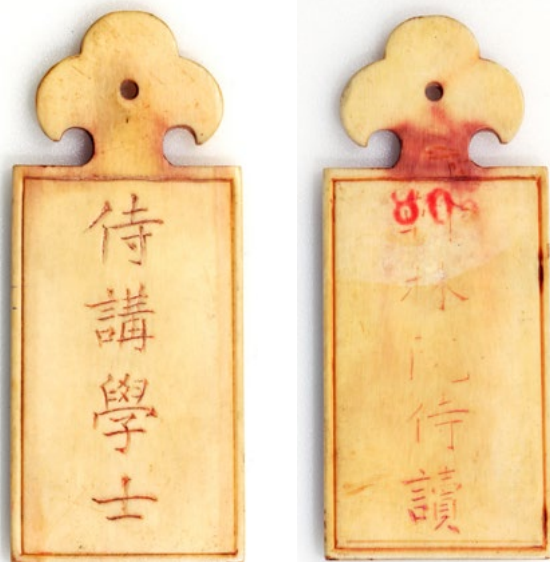 侍講學士
林院侍讀